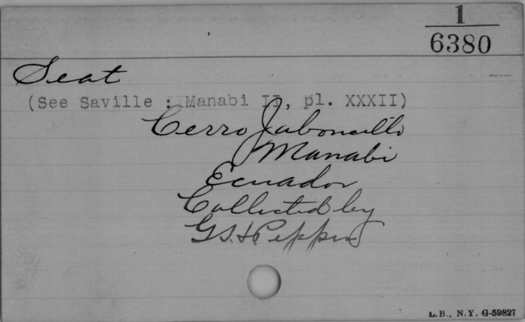 1
6380
Seat
(See Saville : Manabi II, pl. XXXII)
Cerro Jaboncillo
Manabi
Ecuador
Collected by
G. H. Pepper
L.B., N.Y. G-59827